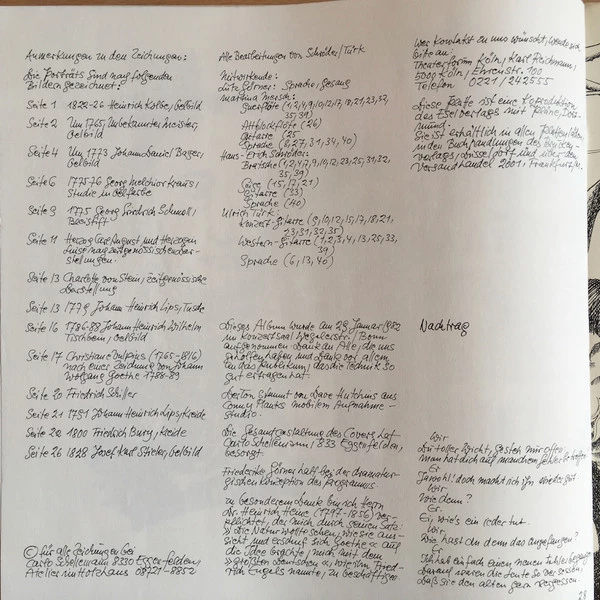 Anmerkungen zu den Zeichnungen:
Die Porträts sind nach folgenden
Bildern gezeichnet:
Seite 1 1822-26 Heinrich Kolbe, Ölbild
Seite 2 Um 1765 Unbekannter Meister,
Ölbild
Seite 4 Um 1773 Johann Daniel Bager,
Ölbild
Seite 6 1775-76 Georg Melchior Kraus,
Studie in Ölfarbe
Seite 9 1775 Georg Friedrich Schmoll,
Bleistift
Seite 11 Herzog Carl August und Herzogin
Luise nach zeitgenössischen Dar-
stellungen.
Seite 13 Charlotte von Stein, zeitgenössische
Darstellung
Seite 13 1779 Johann Heinrich Lips, Tusche
Seite 16 1786-88 Johann Heinrich Wilhelm
Tischbein, Ölbild
Seite 17 Christiane Vulpius (1765-1816)
nach einer Zeichnung von Johann
Wolfgang Goethe 1788-89
Seite 20 Friedrich Schiller
Seite 21 1791 Johann Heinrich Lips, Kreide
Seite 22 1800 Friedrich Bury, Kreide
Seite 26 1828 Josef Karl Stieler, Ölbild
© für alle Zeichnungen bei
Carlo Schellemann 8330 Eggenfelden,
Atelier im Holzhaus 08721-8852
Alle Bearbeitungen von Schröder/Türk
Mitwirkende:
Lutz Görner: Sprache, Gesang
Martina
Querflöte (1,2,4,9,10,12,17,18,21,23,32,
35,39)
Altblockflöte (26)
(25
Sprache (8,27,31,34,40)
Hans-Erich Schröder:
Bratsche (1,2,4,7,9,10,12,23,25,31,32,
35,39)
(15,17,21)
Gitarre (33)
Sprache (40)
Ulrich Türk:
Konzert-Gitarre (9,10,12,15,17,18,21,
23,31,32,35)
Western-Gitarre (1,2,3,4,13,25,33,
39)
Sprache (6,13,40)
Dieses Album wurde am 29. Januar 1982
im Konzertsaal Wegelerstr. Bonn
aufgenommen. Dank an Alle, die uns
geholfen haben und Dank vor allem
an das Publikum, das die Technik so
gut ertragen hat.
Der Ton stammt von Dave Hutchins aus
Conny Planks mobilem Aufnahme-
studio.
Die Gesamtgestaltung des Covers hat
Carlo Schellemann, 833 Eggenfelden,
besorgt.
Friederike Görner half bei der dramatur-
gischen Konzeption des Programms
Zu besonderem Dank bin ich Herrn
Dr. Heinrich Heine (1797-1856) ver-
pflichtet, der mich durch seinen Satz:
» Die Natur wollte sehen, wie sie aus-
sieht und erschuf sich Goethe « auf
die Idee brachte, mich mit dem
» größten Deutschen «, wie ihn Fried-
rich Engels nannte, zu beschäftigen.
Wer Kontakt zu uns wünscht, wende sich
bitte an:
Theaterforum Köln, Karl Reichmann,
5000 Köln, Ehrenstr. 100
Telefon 0221/242555
Diese Platte ist eine Koproduktion
des Eiselverlags mit pläne, Dort-
mund.
Sie ist erhältlich in allen Plattenläden
in den Buchhandlungen des
verlags, Düsseldorf und über den
Versandhandel 2001, Frankfurt/M.
Nachtrag
Wir
Du toller Wicht, gesteh nur offen:
man hat dich auf manchem Fehler betroffen.
Er
Jawohl! doch macht ich ihn wieder gut
Wir
Wie denn?
Er.
Ei, wie's ein jeder tut.
Wir
Wie hast du denn das angefangen?
Er
Ich hab einfach einen neuen Fehler begangen
darauf waren die Leute so versessen,
daß sie den alten gern vergessen.
28